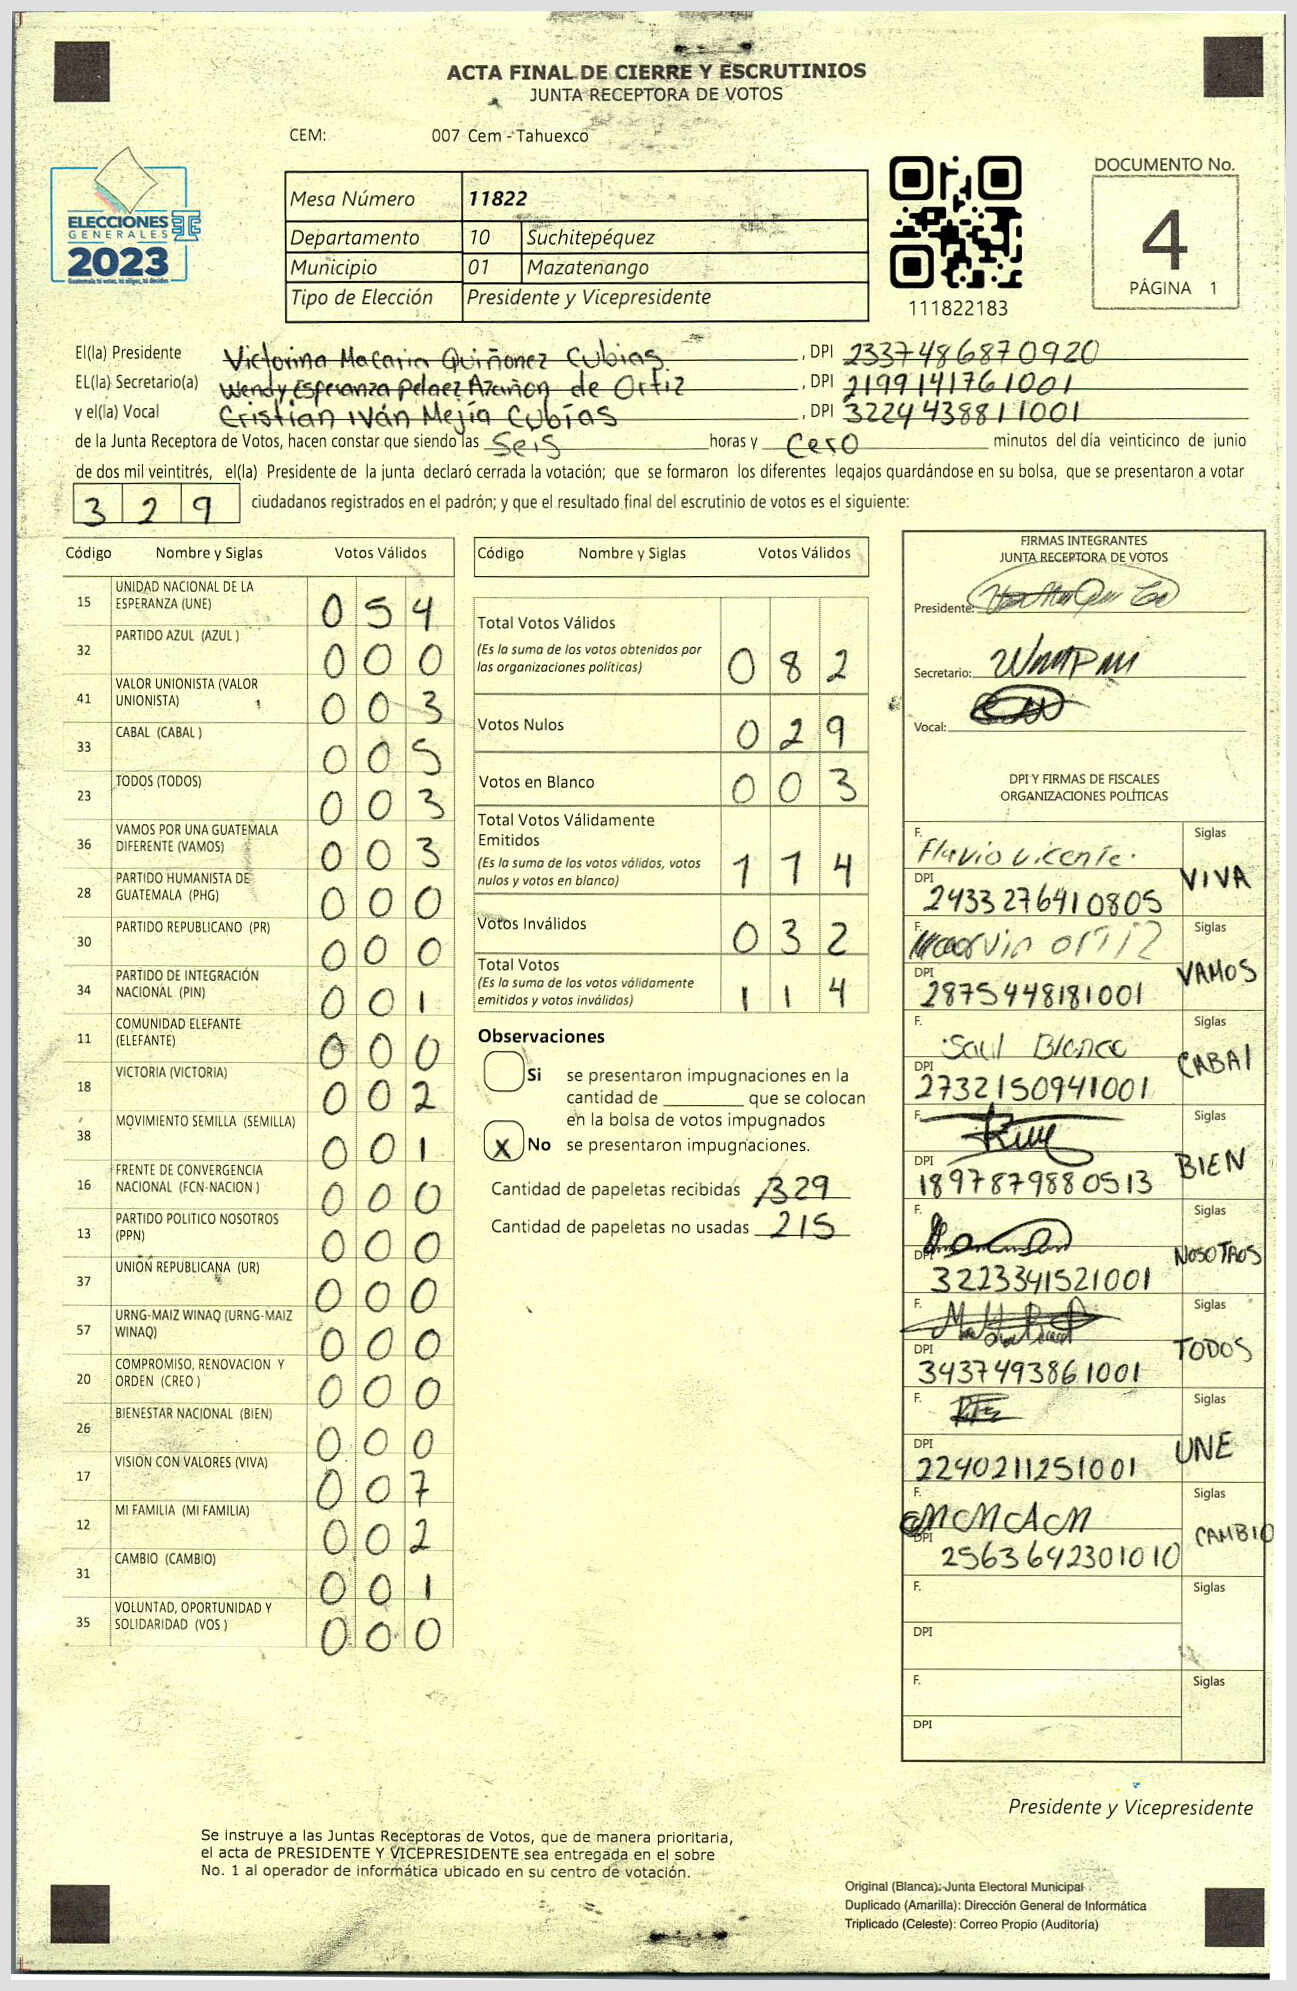 ACTA FINAL DE CIERRE Y ESCRUTINIOS
JUNTA RECEPTORA DE VOTOS
CEM: 007 Cem - Tahuexco
ELECCIONES
GENERALES
2023
Mesa Número 11822
Departamento 10 Suchitepéquez
Municipio 01 Mazatenango
Tipo de Elección Presidente y Vicepresidente
111822183
DOCUMENTO No.
4
PÁGINA 1
El(la) Presidente Victorina Macaria Quiñonez Cubias , DPI 2337486870920
EL(la) Secretario(a) Wendy Esperanza Pelaez Azañon de Ortiz , DPI 2199141761001
y el(la) Vocal Cristian Iván Mejía Cubías , DPI 3224438811001
de la Junta Receptora de Votos, hacen constar que siendo las Seis horas y Cero minutos del día veinticinco de junio
de dos mil veintitrés, el(la) Presidente de la junta declaró cerrada la votación; que se formaron los diferentes legajos guardándose en su bolsa, que se presentaron a votar
3 2 9 ciudadanos registrados en el padrón; y que el resultado final del escrutinio de votos es el siguiente:
Código Nombre y Siglas Votos Válidos
15 UNIDAD NACIONAL DE LA ESPERANZA (UNE) 0 5 4
32 PARTIDO AZUL (AZUL ) 0 0 0
41 VALOR UNIONISTA (VALOR UNIONISTA) 0 0 3
33 CABAL (CABAL ) 0 0 5
23 TODOS (TODOS) 0 0 3
36 VAMOS POR UNA GUATEMALA DIFERENTE (VAMOS) 0 0 3
28 PARTIDO HUMANISTA DE GUATEMALA (PHG) 0 0 0
30 PARTIDO REPUBLICANO (PR) 0 0 0
34 PARTIDO DE INTEGRACIÓN NACIONAL (PIN) 0 0 1
11 COMUNIDAD ELEFANTE (ELEFANTE) 0 0 0
18 VICTORIA (VICTORIA) 0 0 2
38 MOVIMIENTO SEMILLA (SEMILLA) 0 0 1
16 FRENTE DE CONVERGENCIA NACIONAL (FCN-NACION ) 0 0 0
13 PARTIDO POLITICO NOSOTROS (PPN) 0 0 0
37 UNIÓN REPUBLICANA (UR) 0 0 0
57 URNG-MAIZ WINAQ (URNG-MAIZ WINAQ) 0 0 0
20 COMPROMISO, RENOVACION Y ORDEN (CREO ) 0 0 0
26 BIENESTAR NACIONAL (BIEN) 0 0 0
17 VISION CON VALORES (VIVA) 0 0 7
12 MI FAMILIA (MI FAMILIA) 0 0 2
31 CAMBIO (CAMBIO) 0 0 1
35 VOLUNTAD, OPORTUNIDAD Y SOLIDARIDAD (VOS ) 0 0 0
Código Nombre y Siglas Votos Válidos
Total Votos Válidos
(Es la suma de los votos obtenidos por
las organizaciones políticas) 0 8 2
Votos Nulos 0 2 9
Votos en Blanco 0 0 3
Total Votos Válidamente
Emitidos
(Es la suma de los votos válidos, votos
nulos y votos en blanco) 1 1 4
Votos Inválidos 0 3 2
Total Votos
(Es la suma de los votos válidamente
emitidos y votos inválidos) 1 1 4
Observaciones
Si se presentaron impugnaciones en la
cantidad de ________ que se colocan
en la bolsa de votos impugnados
X No se presentaron impugnaciones.
Cantidad de papeletas recibidas 329
Cantidad de papeletas no usadas 215
FIRMAS INTEGRANTES
JUNTA RECEPTORA DE VOTOS
Presidente:
Secretario:
Vocal:
DPI Y FIRMAS DE FISCALES
ORGANIZACIONES POLÍTICAS
F. Flavio Vicente. Siglas
DPI 2433276410805 VIVA
F. Marvin Ortiz Siglas
DPI 2875448181001 VAMOS
F. Saul Blanco Siglas
DPI 2732150941001 CABAl
F. Siglas
DPI 1897879880513 BIEN
F. Siglas
DPI 3223341521001 NOSOTROS
F. Siglas
DPI 3437493861001 TODOS
F. Siglas
DPI 2240211251001 UNE
F. Siglas
DPI 2563642301010 CAMBIO
F. Siglas
DPI
F. Siglas
DPI
Presidente y Vicepresidente
Se instruye a las Juntas Receptoras de Votos, que de manera prioritaria,
el acta de PRESIDENTE Y VICEPRESIDENTE sea entregada en el sobre
No. 1 al operador de informática ubicado en su centro de votación.
Original (Blanca): Junta Electoral Municipal
Duplicado (Amarilla): Dirección General de Informática
Triplicado (Celeste): Correo Propio (Auditoría)